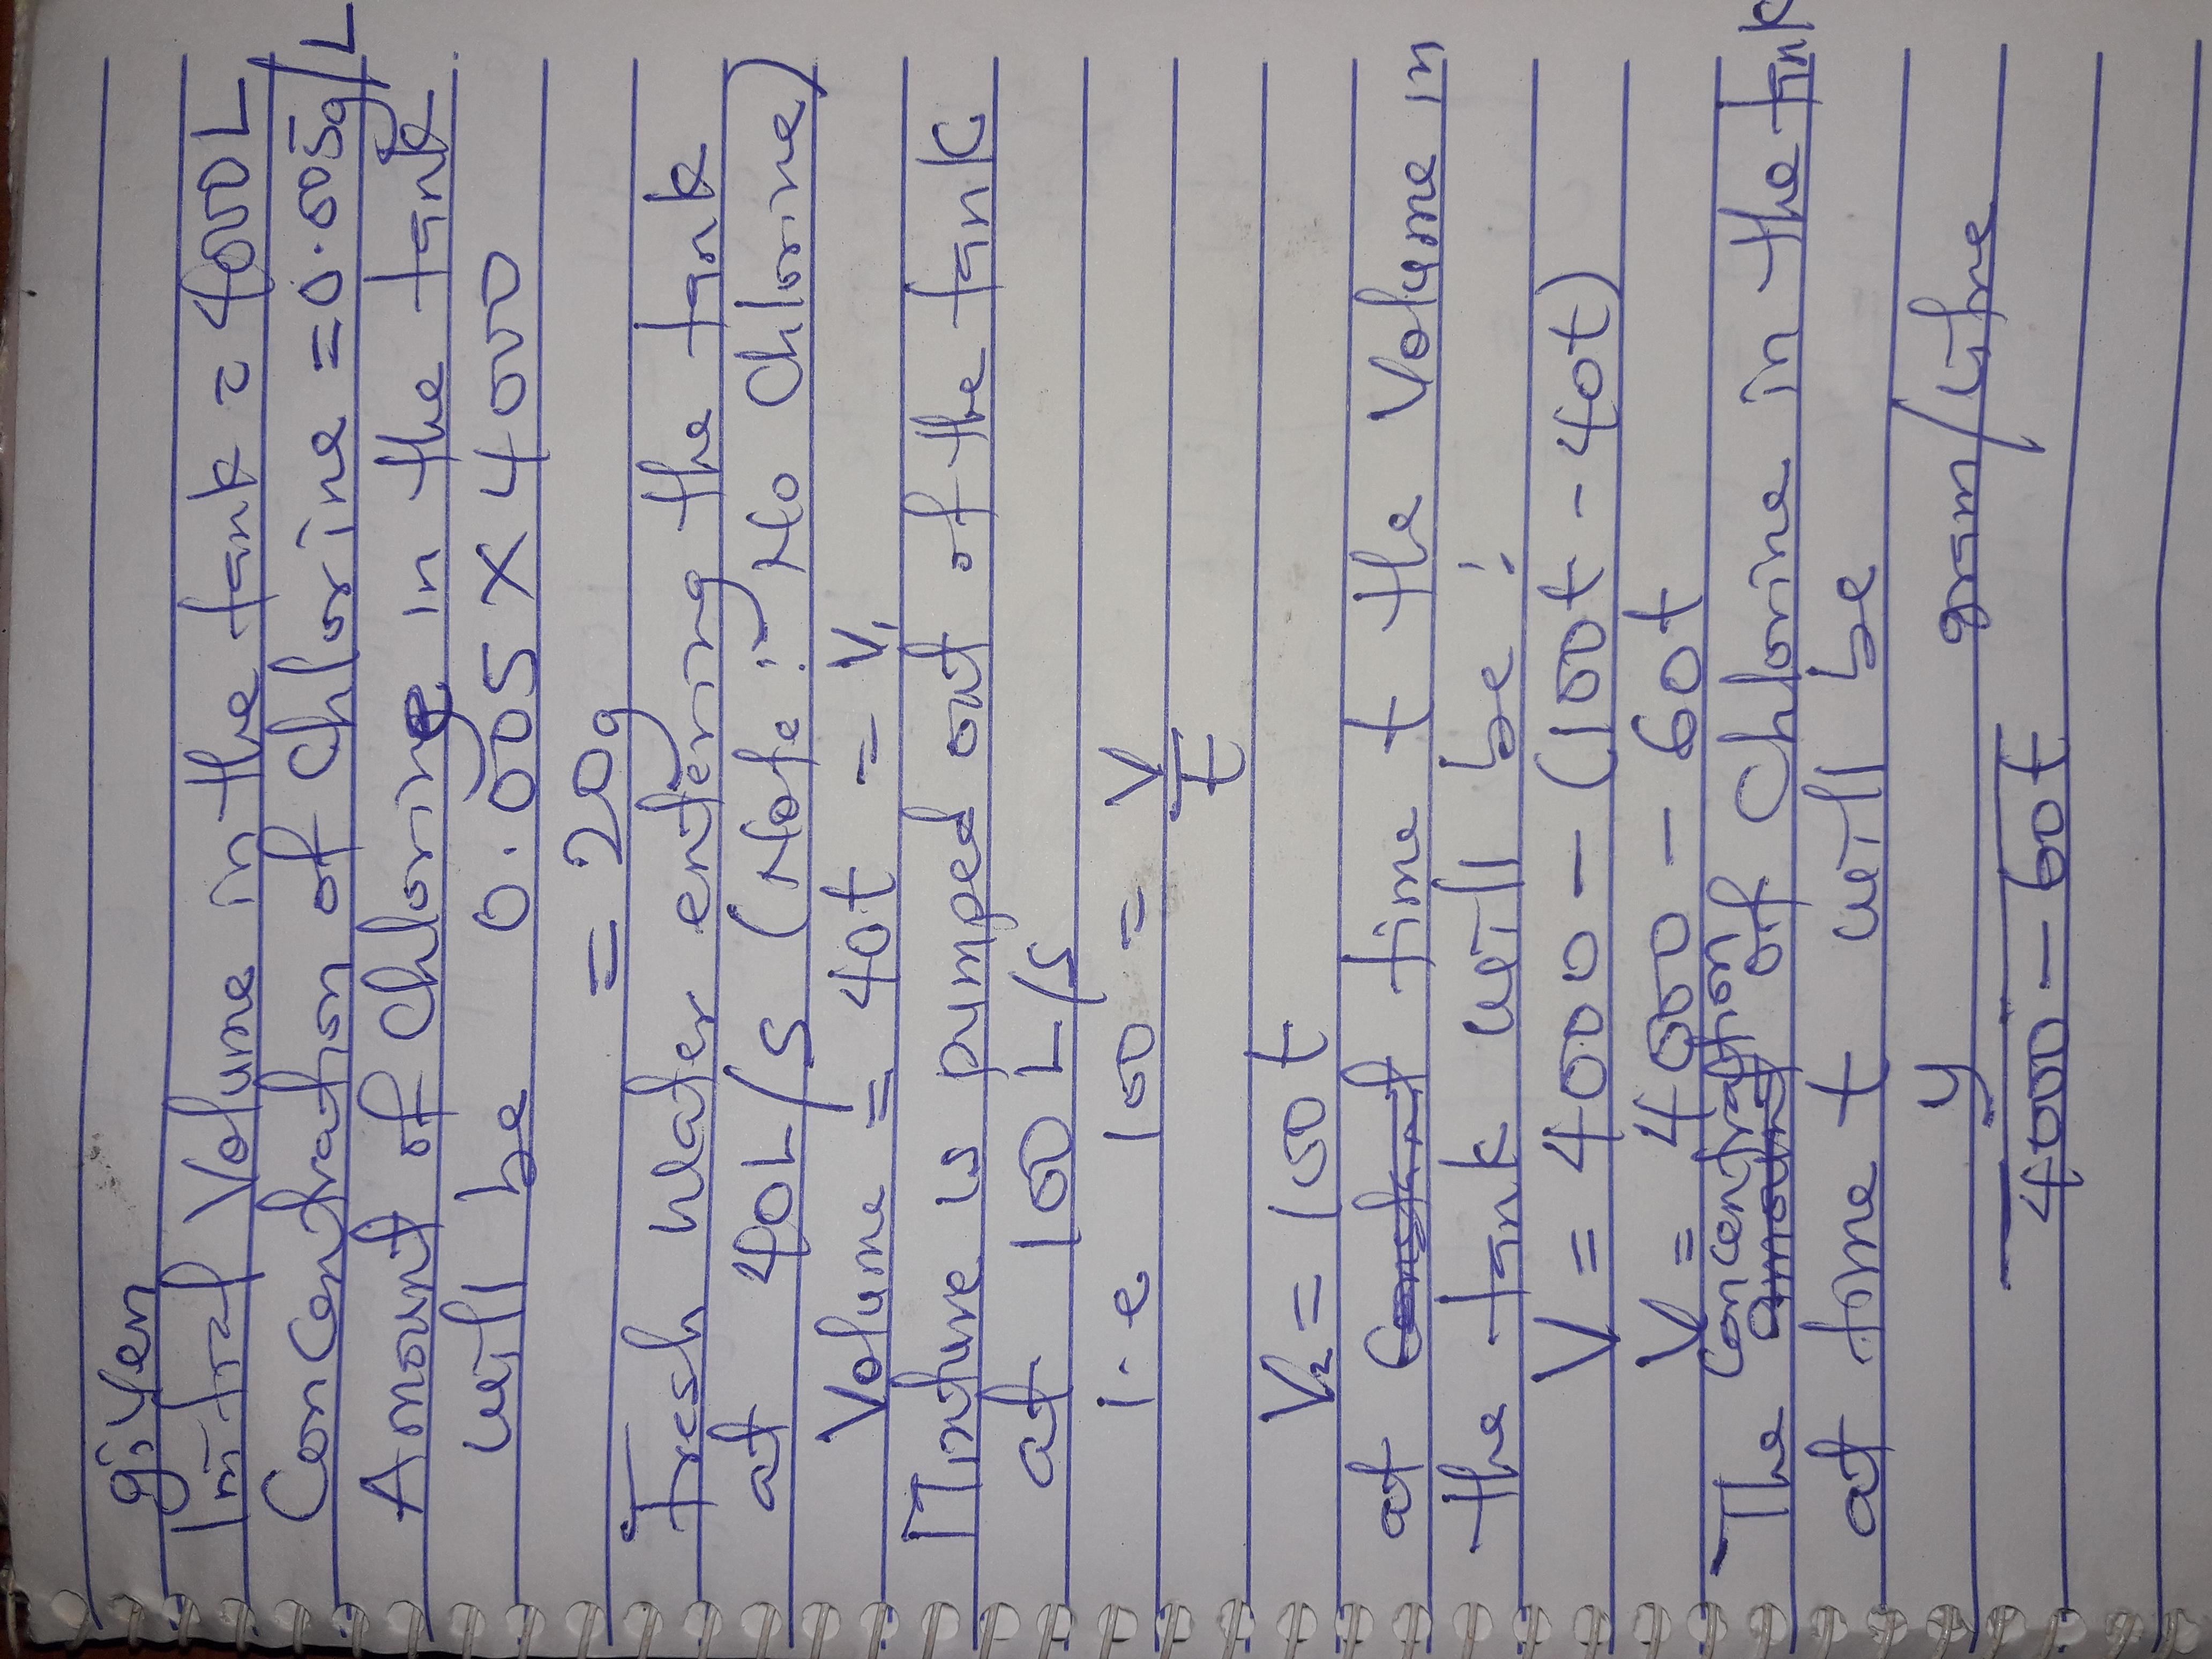 given
Initial Volume in the tank = 4000L
Concentration of Chlorine = 0.005g/L
Amount of Chlorine in the tank
will be 0.005 x 4000
= 20g
Fresh water entering the tank
at 40L/S (Note: No Chlorine)
Volume = 40t = V1
Mixture is pumped out of the tank
at 100 L/S
i.e 100 = V/t
V2 = 100t
at time t the Volume in
the tank will be:
V = 4000 - (100t - 40t)
V = 4000 - 60t
The Concentration of Chlorine in the tank
at time t will be
y gram/litre
4000 - 60t